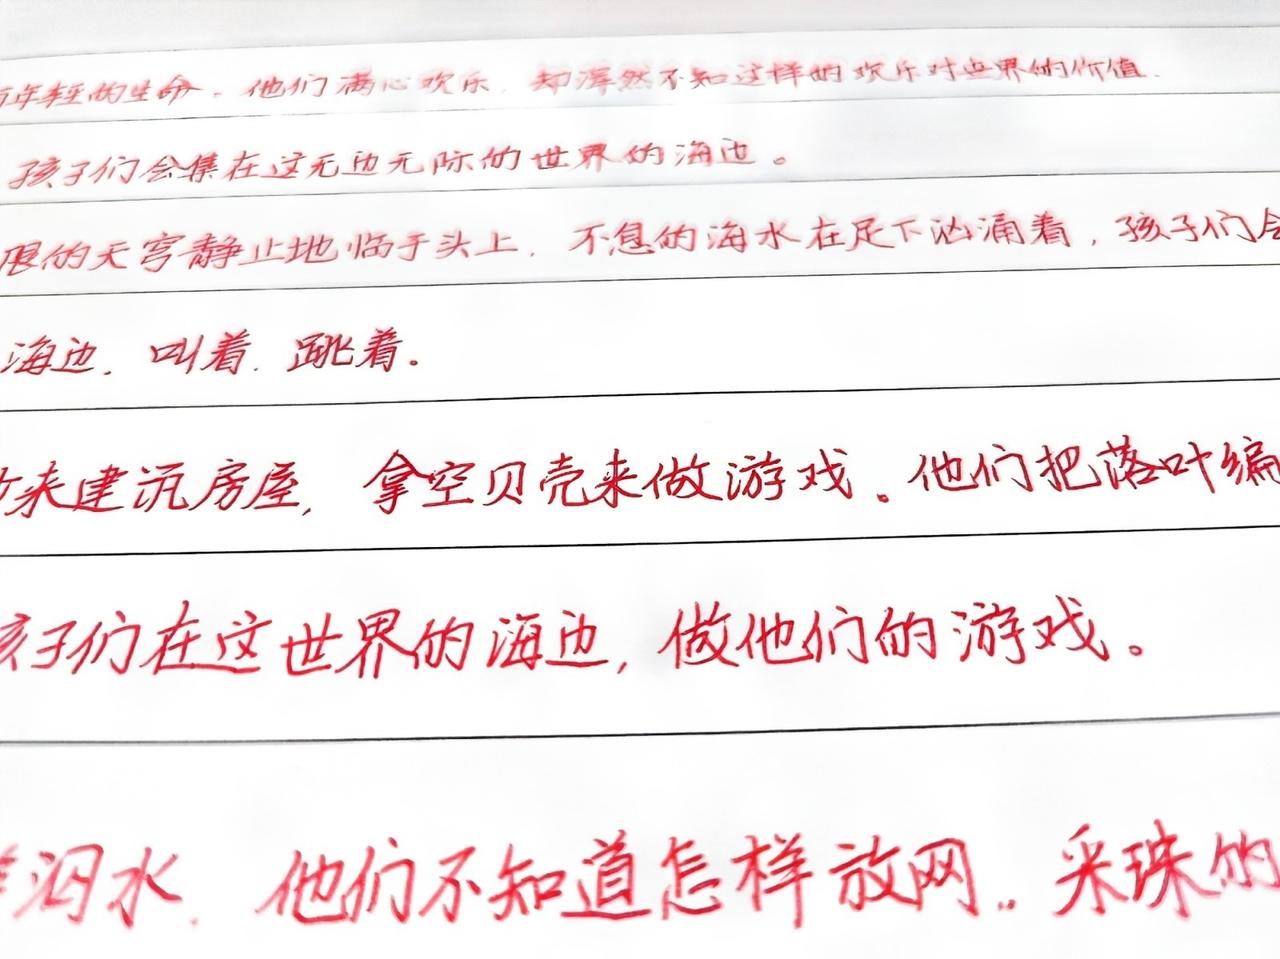 年轻的生命。他们满心欢乐，却浑然不知这样的欢乐对世界的价值.
孩子们会集在这无边无际的世界的海边。
限的天穹静止地临于头上，不息的海水在足下汹涌着，孩子们会
海边，叫着，跳着。
来建筑房屋，拿空贝壳来做游戏。他们把落叶编
孩子们在这世界的海边，做他们的游戏。
泅水，他们不知道怎样放网。采珠的